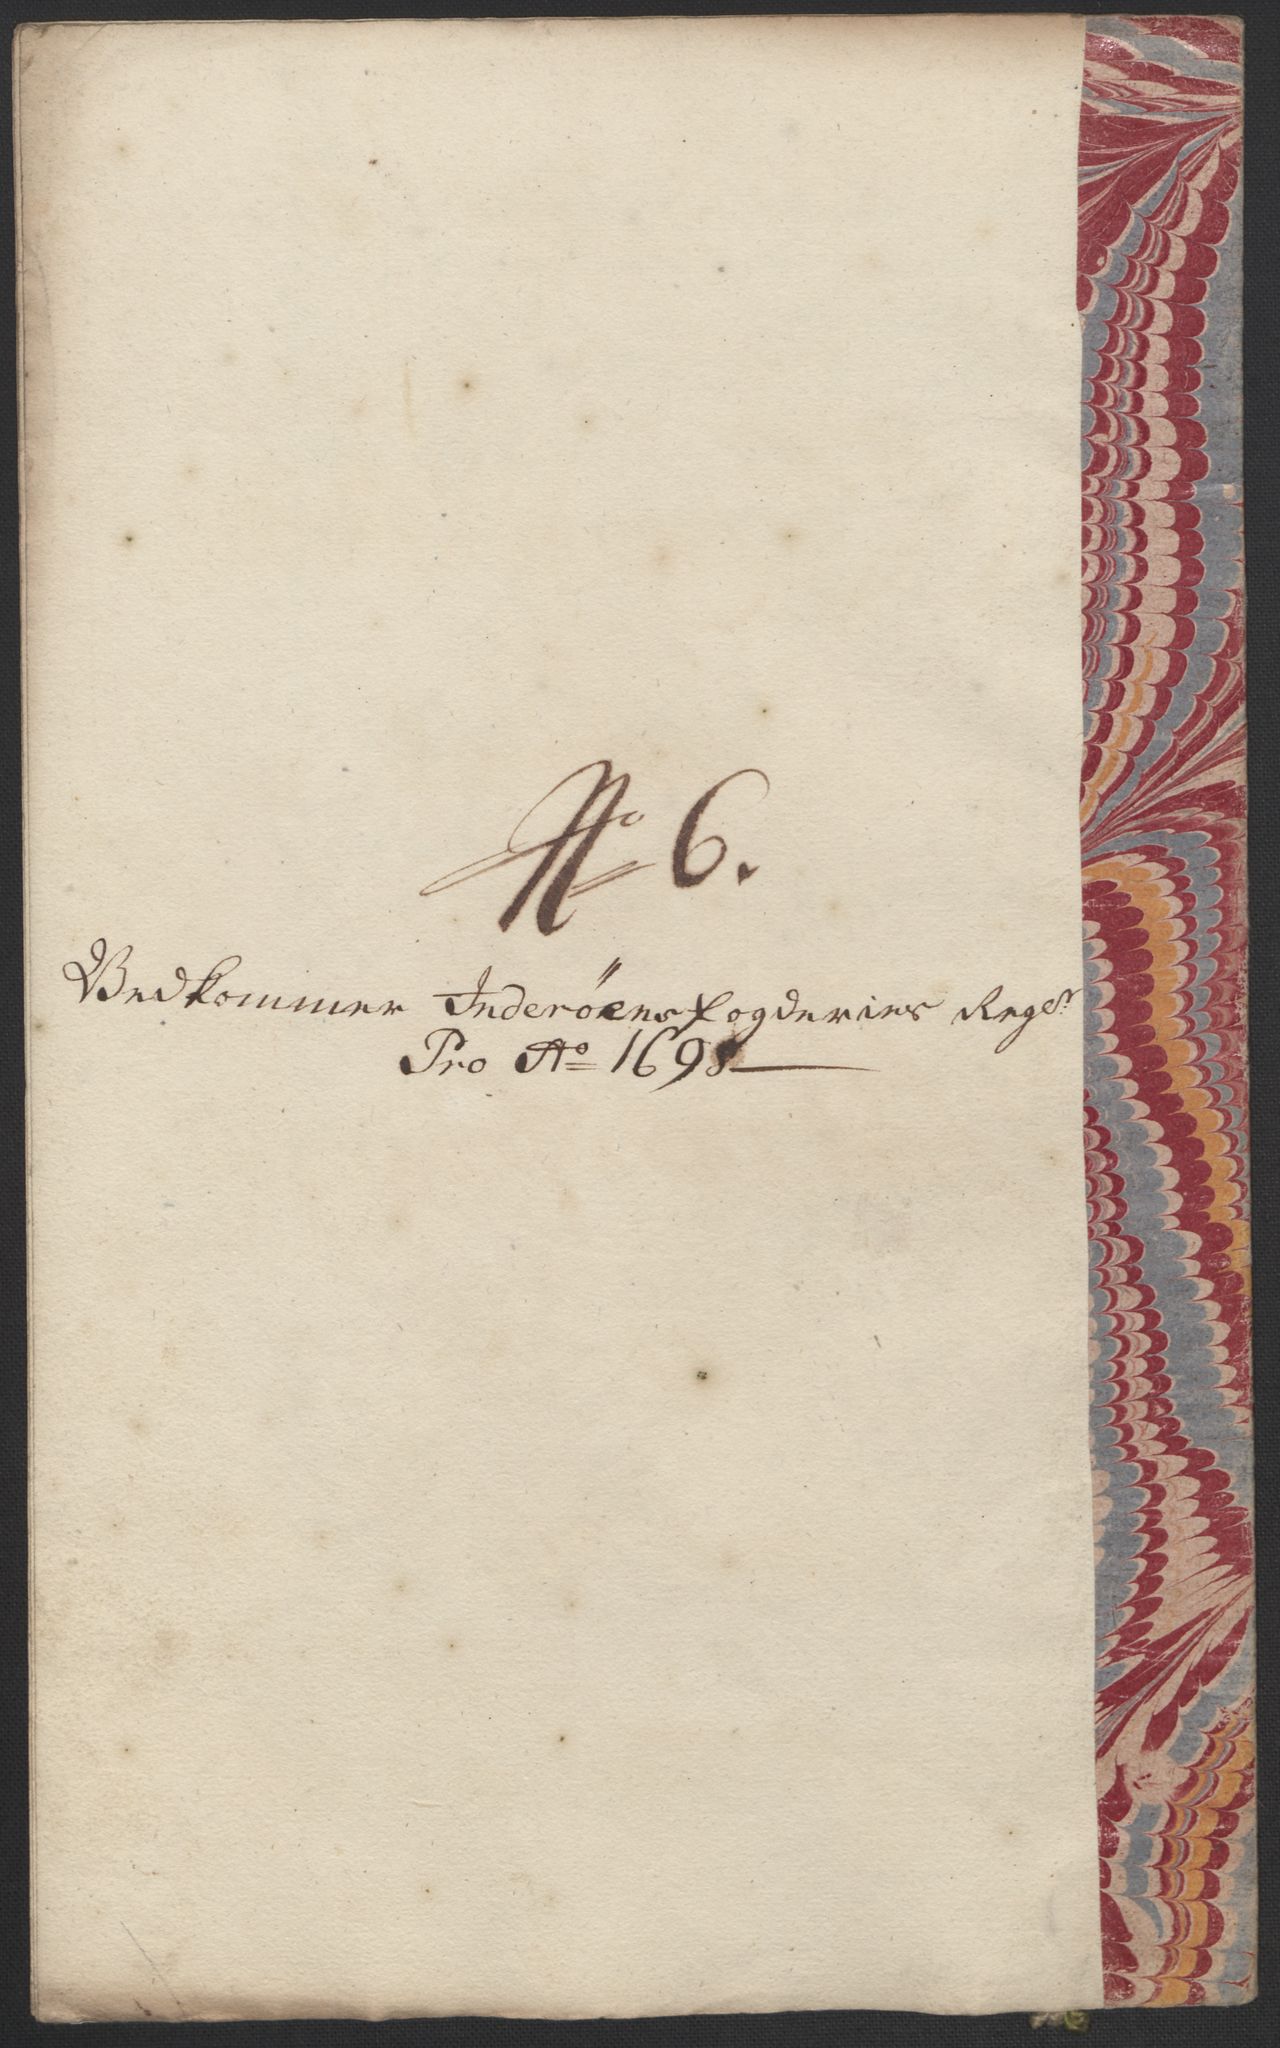 No 6.
Vedkommer Inderöens fogderies Regsr
Pro Ao 1698